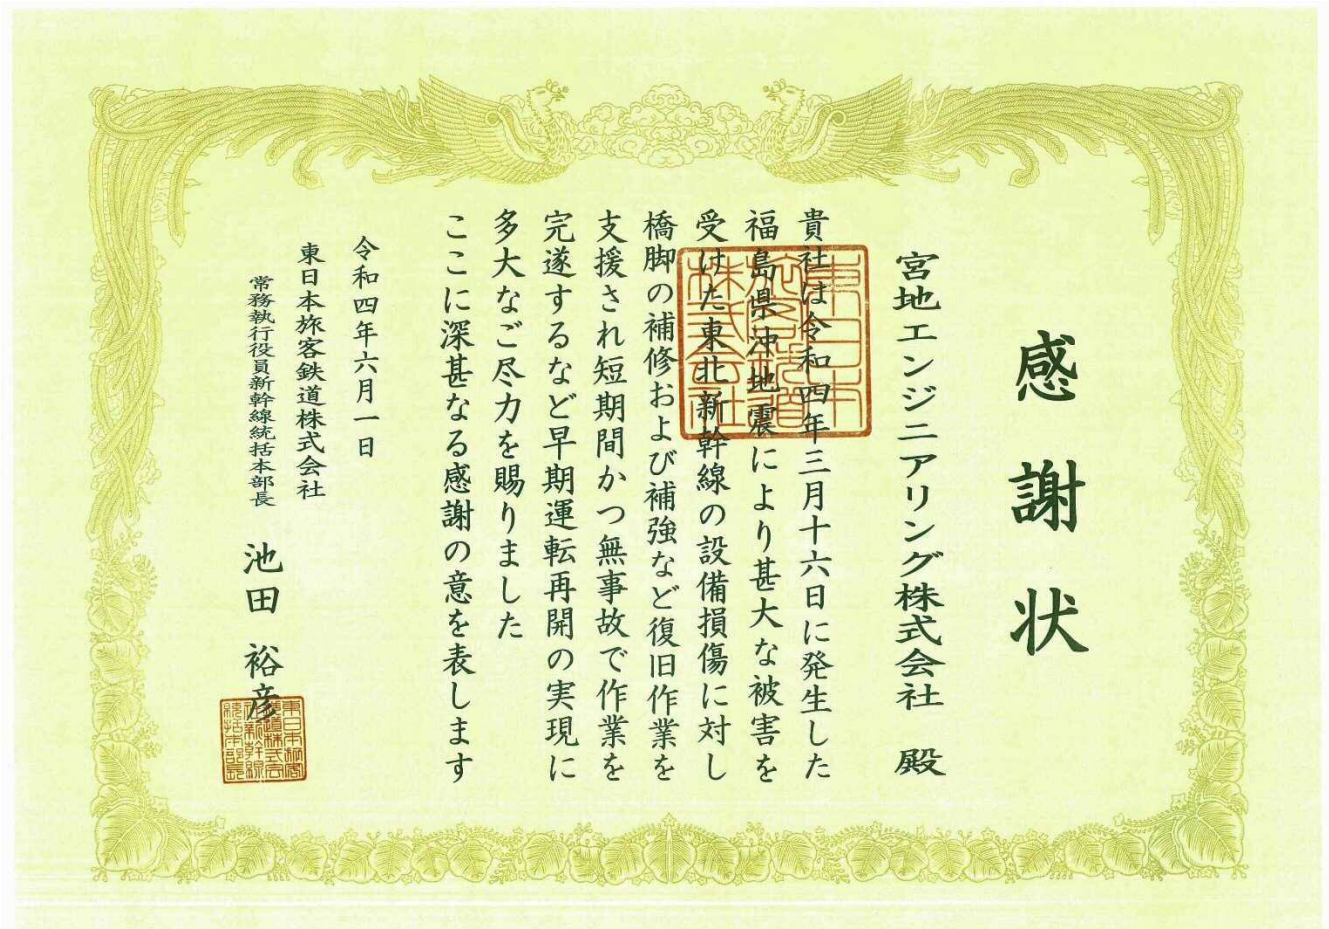 感謝状
宮地エンジニアリング株式会社 殿
貴社は令和四年三月十六日に発生した
福島県沖地震により甚大な被害を
受けた東北新幹線の設備損傷に対し
橋脚の補修および補強など復旧作業を
支援され短期間かつ無事故で作業を
完遂するなど早期運転再開の実現に
多大なご尽力を賜りました
ここに深甚なる感謝の意を表します
令和四年六月一日
東日本旅客鉄道株式会社
常務執行役員新幹線統括本部長 池田 裕彦
東日本
旅客鉄道
株式会社